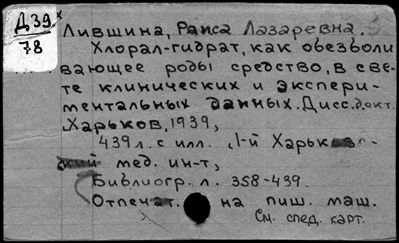 Д39
78
Лившина, Раиса Лазаревна.
Хлорал-гидрат, как обезболи
вающее роды средство, в све-
те клинических и экспери-
ментальных данных. Дисс. докт.
Харьков, 1939,
439 л. с илл. 1-й Харьков-
ский мед. ин-т,
Библиогр. л. 358-439.
Отпечат. на пиш. маш.
См. спец. карт.